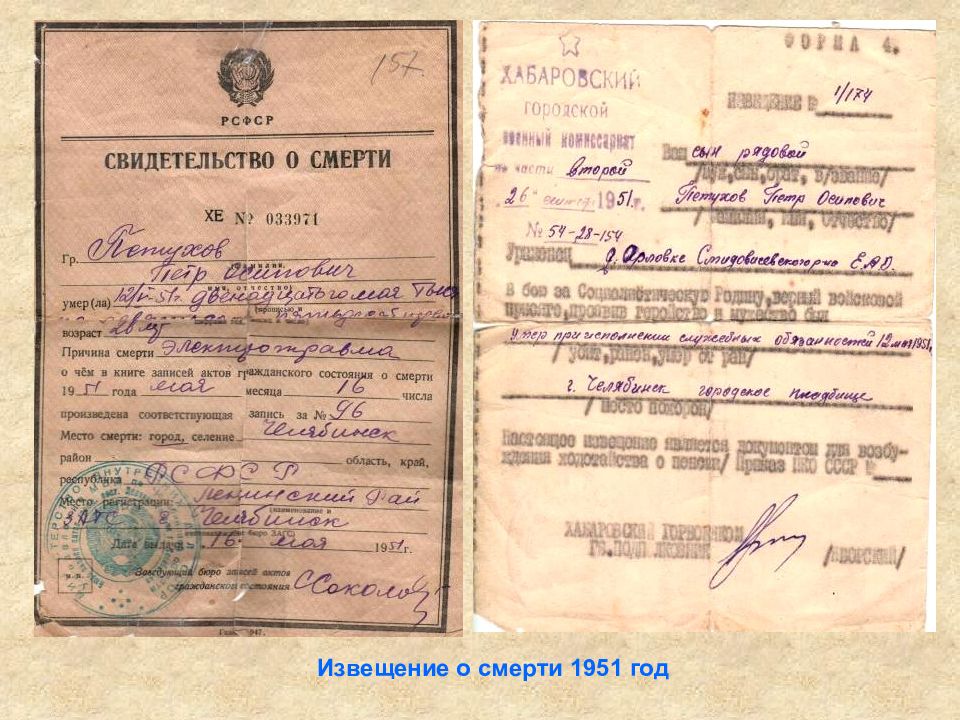 157.
РСФСР
СВИДЕТЕЛЬСТВО О СМЕРТИ
ХЕ № 033971
Гр. Петухов
Петр Осипович
умер (ла) 12/V-51г. двенадцатого мая
возраст 28 лет
Причина смерти электротравма
о чём в книге записей актов гражданского состояния о смерти
1951 года мая месяца 16 числа
произведена соответствующая запись за № 96
Место смерти: город, селение Челябинск
район область, край,
республика РСФСР
Место регистрации: Ленинский рай
ЗАГС г. Челябинск
Дата выдачи 16 мая 1951г.
Заведующий бюро записей актов
гражданского состояния
ФОРМА 4.
ХАБАРОВСКИЙ
ГОРОДСКОЙ
военный комиссариат
по части второй
26 1951г.
№ 54-28-154
ИЗВЕЩЕНИЕ № 1/174
Ваш сын рядовой
/муж, сын, брат, в/звание/
Петухов Петр Осипович
/фамилия, имя, отчество/
Уроженец д. Орловке ЕАО.
В бою за Социалистическую Родину, верный войсковой
присяге, проявив геройство и мужество был
умер при исполнении служебных обязанностей 12 мая 1951г.
/ убит, ранен, умер от ран/
г. Челябинск городское кладбище
/ место похорон/
Настоящее извещение является документом для возбу-
ждения ходатайства о пенсии/ Приказ НКО СССР №
ХАБАРОВСКИЙ ГОРВОЕНКОМ
ГВ. ПОДПОЛКОВНИК /ЯВОРСКИЙ/
Извещение о смерти 1951 год